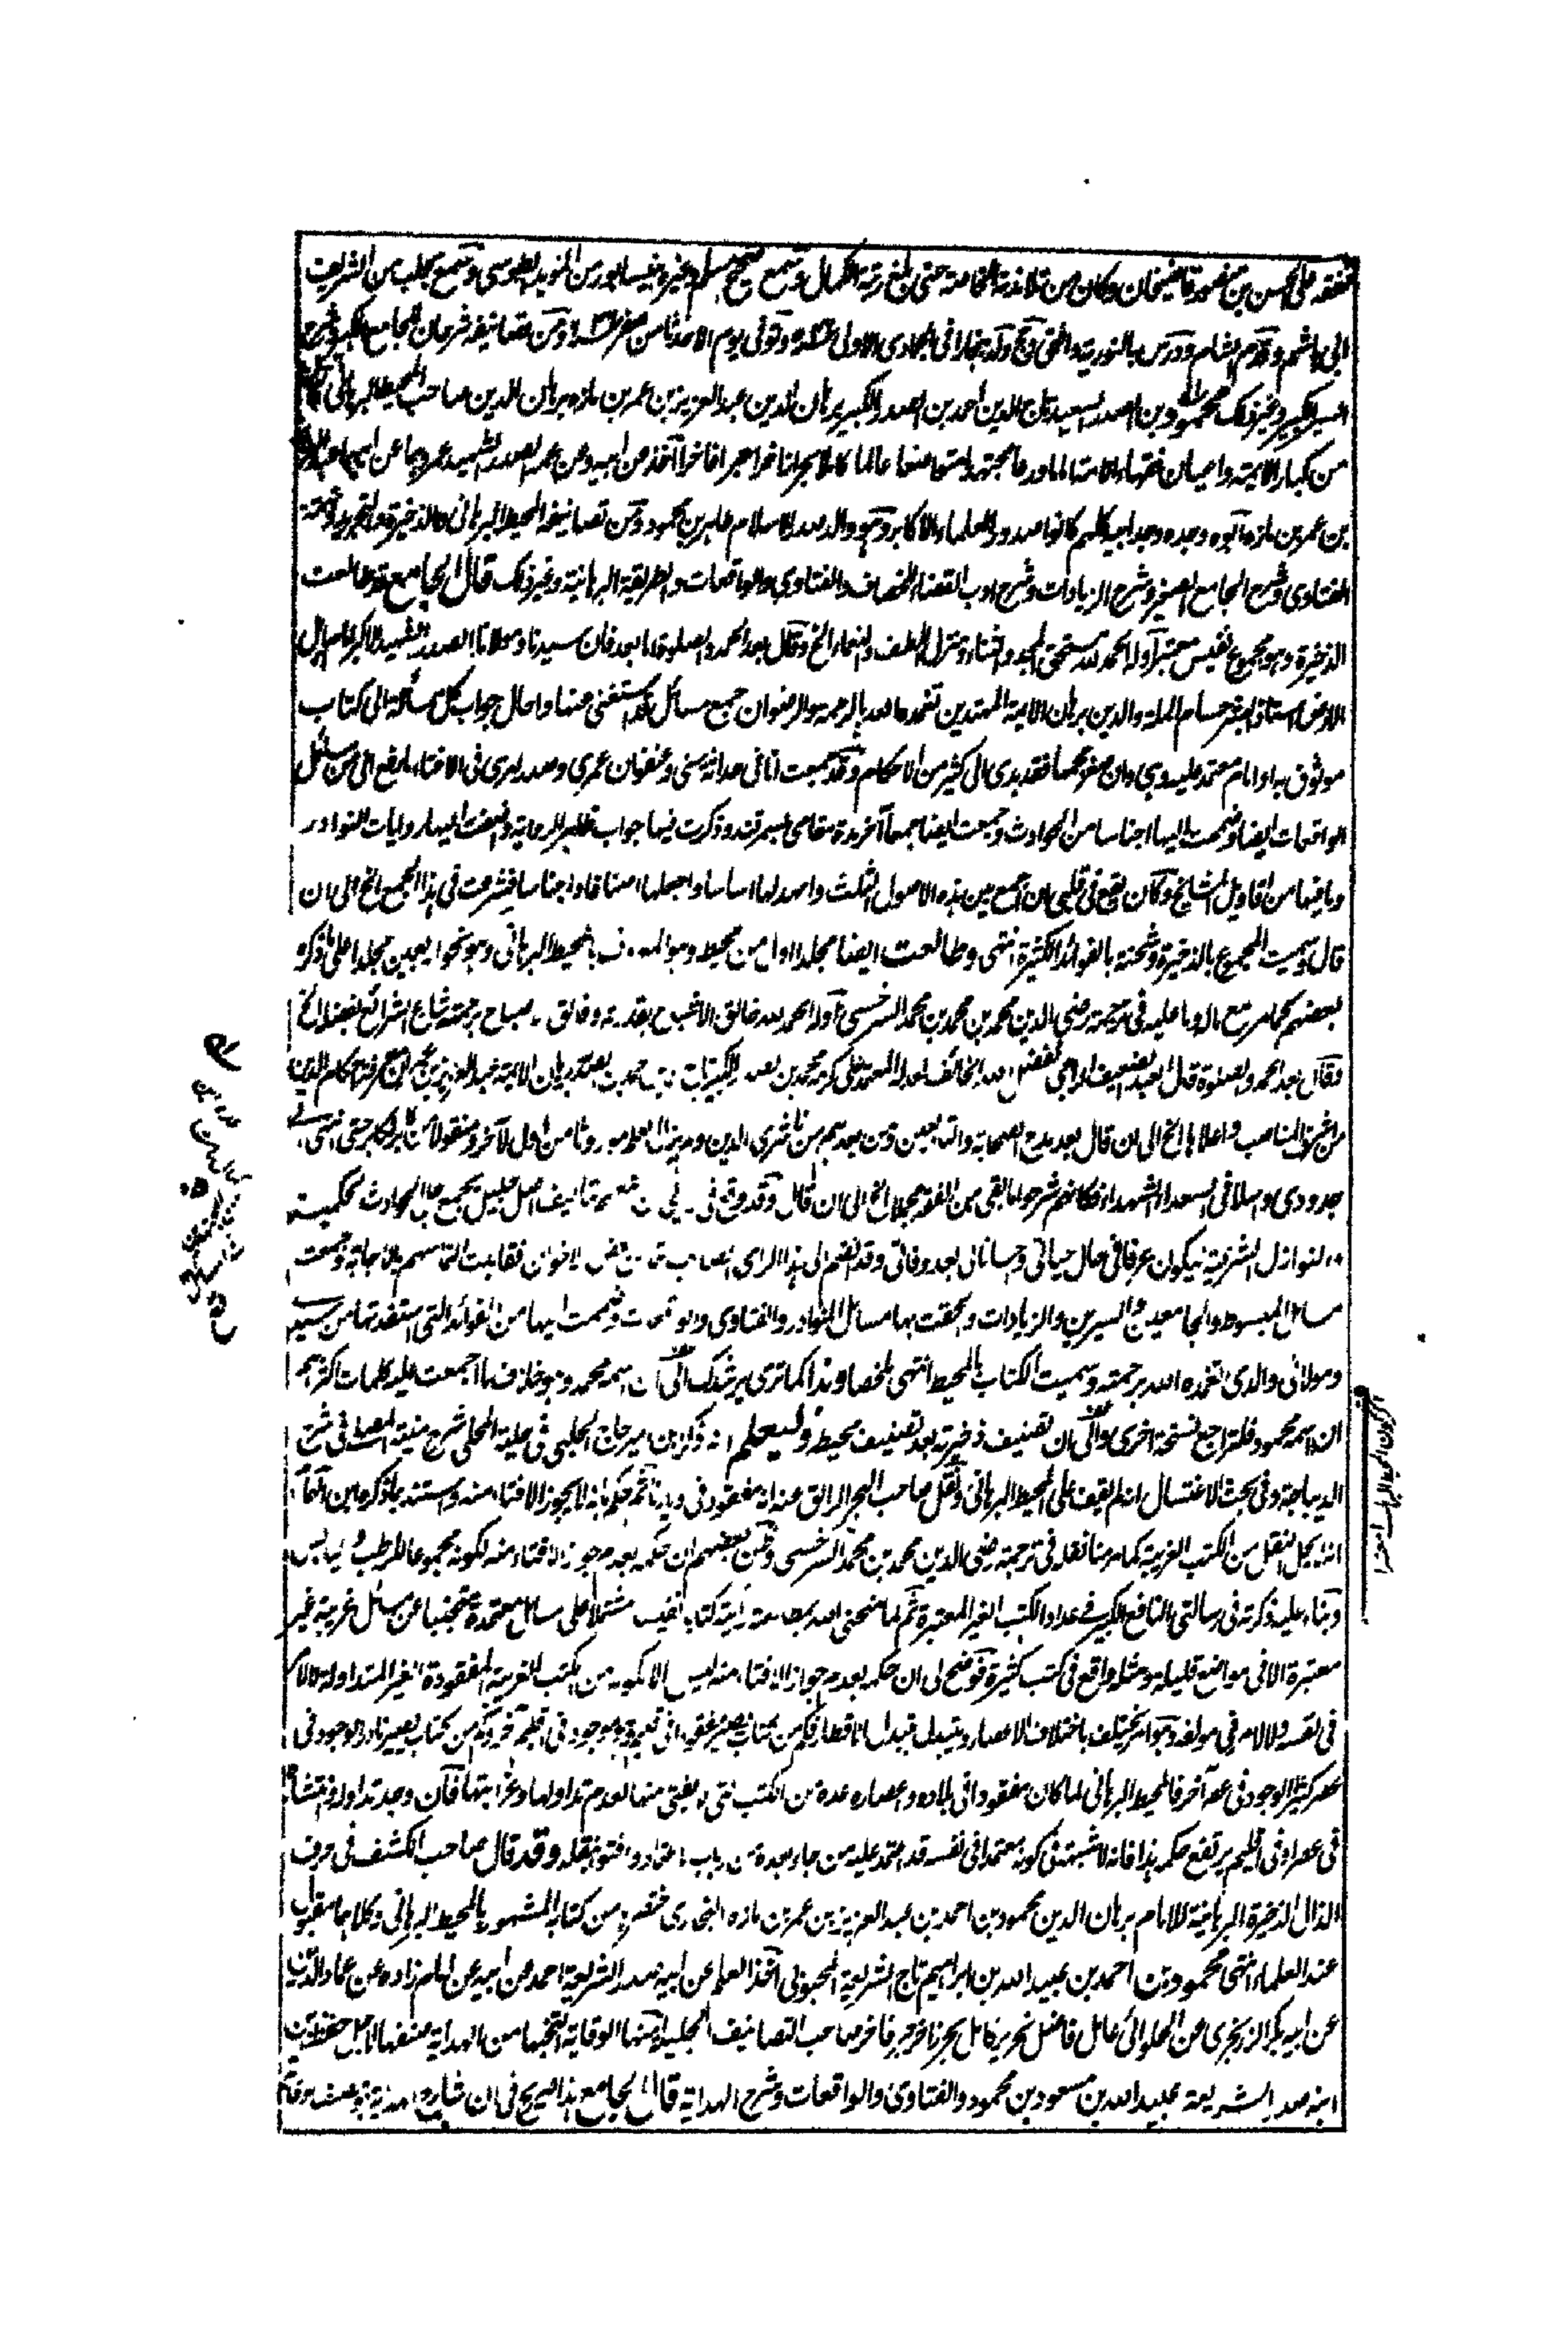 تفقه على الحسن بن منصور قاضيخان وكان من تلامذته الخاصة حتى بلغ رتبة الكمال وسمع صحيح مسلم وغيره بنيسابور من المؤيد الطوسى وسمع بحلب من الشريف
ابى هاشم وقدم الشام ودرس بالنورية وافتى ولد ببخارا فى جمادى الاولى وتوفى يوم الاحد ثامن صفر ومن تصانيفه شرحان للجامع الكبير وشرح
السير الكبير وغير ذلك محمود بن الصدر السعيد تاج الدين احمد بن الصدر الكبير برهان الدين عبد العزيز بن عمر بن مازه برهان الدين صاحب المحيط البرهانى كان
من كبار الائمة واعيان فقهاء الامة اماما ورعا مجتهدا متواضعا عالما كاملا بحرا زاخرا حبرا فاخرا اخذ عن ابيه وعن عمه الصدر الشهيد عمر وهما عن ابيهما عبد العزيز
بن عمر بن مازه ابوه وجده وجد ابيه كلهم كانوا صدور العلماء الاكابر وهو والد صدر الاسلام طاهر بن محمود ومن تصانيفه المحيط البرهانى والذخيرة والتجريد وتتمة
الفتاوى وشرح الجامع الصغير وشرح الزيادات وشرح ادب القضاء للخصاف والفتاوى والواقعات والطريقة البرهانية وغير ذلك قال الجامع قد طالعت
الذخيرة وهو مجموع نفيس معتبر اوله الحمد لله مستحق الحمد والثناء ومنزل اللطف والنعماء الخ وقال بعد الحمد والصلوة اما بعد فان سيدنا ومولانا الصدر الشهيد الاكبر
استاذ البشر حسام الملة والدين برهان الائمة المهتدين تغمده الله بالرحمة والرضوان جمع مسائل قد استفتى عنها واحال جواب كل مسألة الى كتاب
موثوق به او امام معتمد عليه وهى وان صغر حجمها فقد يهدى الى كثير من الاحكام وقد جمعت انا فى حداثة سنى وعنفوان عمرى وصدر امرى فى الافتاء ما رفع الى من مسائل
الواقعات ايضا وضممت اليها اجناسا من الحوادث وجمعت ايضا جمعا آخر مدة مقامى بسمرقند وذكرت فيها جواب ظاهر الرواية واضفت اليها روايات النوادر
وما فيها من اقاويل المشايخ وكان يقع فى قلبى ان اجمع بين هذه الاصول الثلث وامهد لها اساسا واجعلها اصنافا واجناسا فشرعت فى هذا الجمع الخ الى ان
قال وسميت المجموع بالذخيرة وشحنته بالفوائد الكثيرة انتهى وطالعت ايضا مجلدا اولا من محيطه وهو المعروف بالمحيط البرهانى وهو نحو اربعين مجلدا على ما ذكره
بعضهم كما مر مع ماله وما عليه فى ترجمة رضى الدين محمد بن محمد بن محمد السرخسى اوله الحمد لله خالق الاشباح بقدرته وفالق الاصباح برحمته شارع الشرائع بفضله الخ
وقال بعد الحمد والصلوة قال العبد الضعيف الراجى لفضل الله الخائف لعدله المعتمد على كرمه محمد بن الصدر الكبير تاج الدين احمد بن الصدر برهان الائمة عبد العزيز بن عمر معرفة احكام الدين
من اشرف المناصب واعلاها الخ الى ان قال بعد مدح الصحابة والتابعين ومن بعدهم من ناشرى الدين ولم يزل العلم موروثا من اول لآخر ومنقولا من كابر لكابر حتى انتهى الى
جدودى واسلافى السعداء الشهداء فكانهم شرحوا ما بقى من الفقه مجملا الخ الى ان قال وقد وقع فى تاليف اصل جليل يجمع جل الحوادث الحكمية
والنوازل الشرعية ليكون عونا فى حال حياتى وحسانا لى بعد وفاتى وقد انضم الى هذا الراى الصائب التماس بعض الاخوان فقابلت التماسهم بالاجابة وجمعت
مسائل المبسوط والجامعين والسيرين والزيادات والحقت بها مسائل النوادر والفتاوى والواقعات وضممت اليها من الفوائد التى استفدتها من سيدى
ومولائى والدى تغمده الله برحمته وسميت الكتاب بالمحيط انتهى ملخصا وهذا كما ترى يرشدك الى ان اسمه محمد وهو خلاف ما اجمعت عليه كلمات اكثرهم
ان اسمه محمود فلتراجع نسخة اخرى والى ان تصنيف ذخيرته بعد تصنيف محيطه وليعلم انه ذكر ابن امير حاج الحلبى فى حلية المحلى شرح منية المصلى فى شرح
الديباجة وفى بحث الاغتسال انه لم يقف على المحيط البرهانى ونقل صاحب البحر الرائق عنه انه مفقود فى ديارنا ثم حكم بانه لا يجوز الافتاء منه واستند بما ذكره ابن الهمام
انه لا يحل النقل من الكتب الغريبة كما مر منا نقله فى ترجمة رضى الدين محمد بن محمد السرخسى وظن بعضهم ان حكمه بعدم جواز الافتاء منه لكونه مجموعا للرطب واليابس
وبناء عليه ذكرته فى رسالتى النافع الكبير فى عداد الكتب الغير المعتبرة ثم لما منحنى الله بمطالعته رأيته كتابا نفيسا مشتملا على مسائل معتمدة متجنبا عن مسائل غريبة غير
معتبرة الا فى مواضع قليلة ومثله واقع فى كتب كثيرة فوضح لى ان حكمه بعدم جواز الافتاء منه ليس الا لكونه من الكتب الغريبة المفقودة الغير المتداولة لا لامر
فى نفسه ولا لامر فى مولفه وهو امر يختلف باختلاف الاعصار ويتبدل بتبدل الاقطار فكم من كتاب يصير مفقودا فى اقليم وهو موجود فى اقليم آخر وكم من كتاب يصير نادر الوجود فى
عصر كثير الوجود فى عصر آخر فالمحيط البرهانى لما كان مفقودا فى بلاده واعصاره عده من الكتب التى لا يفتى منها لعدم تداولها وغرابتها فان وجد تداوله وانتشاره
فى عصر او فى اقليم يرتفع حكمه هذا فانه لا شبهة فى كونه معتمدا فى نفسه قد اعتمد عليه من جاء بعده من ارباب الاعتماد وافتوا بنقله وقد قال صاحب الكشف فى حرف
الذال الذخيرة البرهانية للامام برهان الدين محمود بن احمد بن عبد العزيز بن عمر بن مازه البخارى اختصره من كتابه المشهور بالمحيط البرهانى وكلاهما مقبول
عند العلماء انتهى محمود بن احمد بن عبيد الله بن ابراهيم تاج الشريعة المحبوبى اخذ العلم عن ابيه صدر الشريعة احمد عن ابيه عن امام زاده عن عماد الدين
عن ابيه بكر الزرنجرى عن الحلوائى عالم فاضل نحرير كامل بحر زاخر حبر فاخر صاحب التصانيف الجليلة منها الوقاية انتخبها من الهداية صنفها لاجل حفظ ابن
ابنه صدر الشريعة عبيد الله بن مسعود بن محمود والفتاوى والواقعات وشرح الهداية قال الجامع هذا صريح فى ان شارح الهداية ومصنف الوقاية